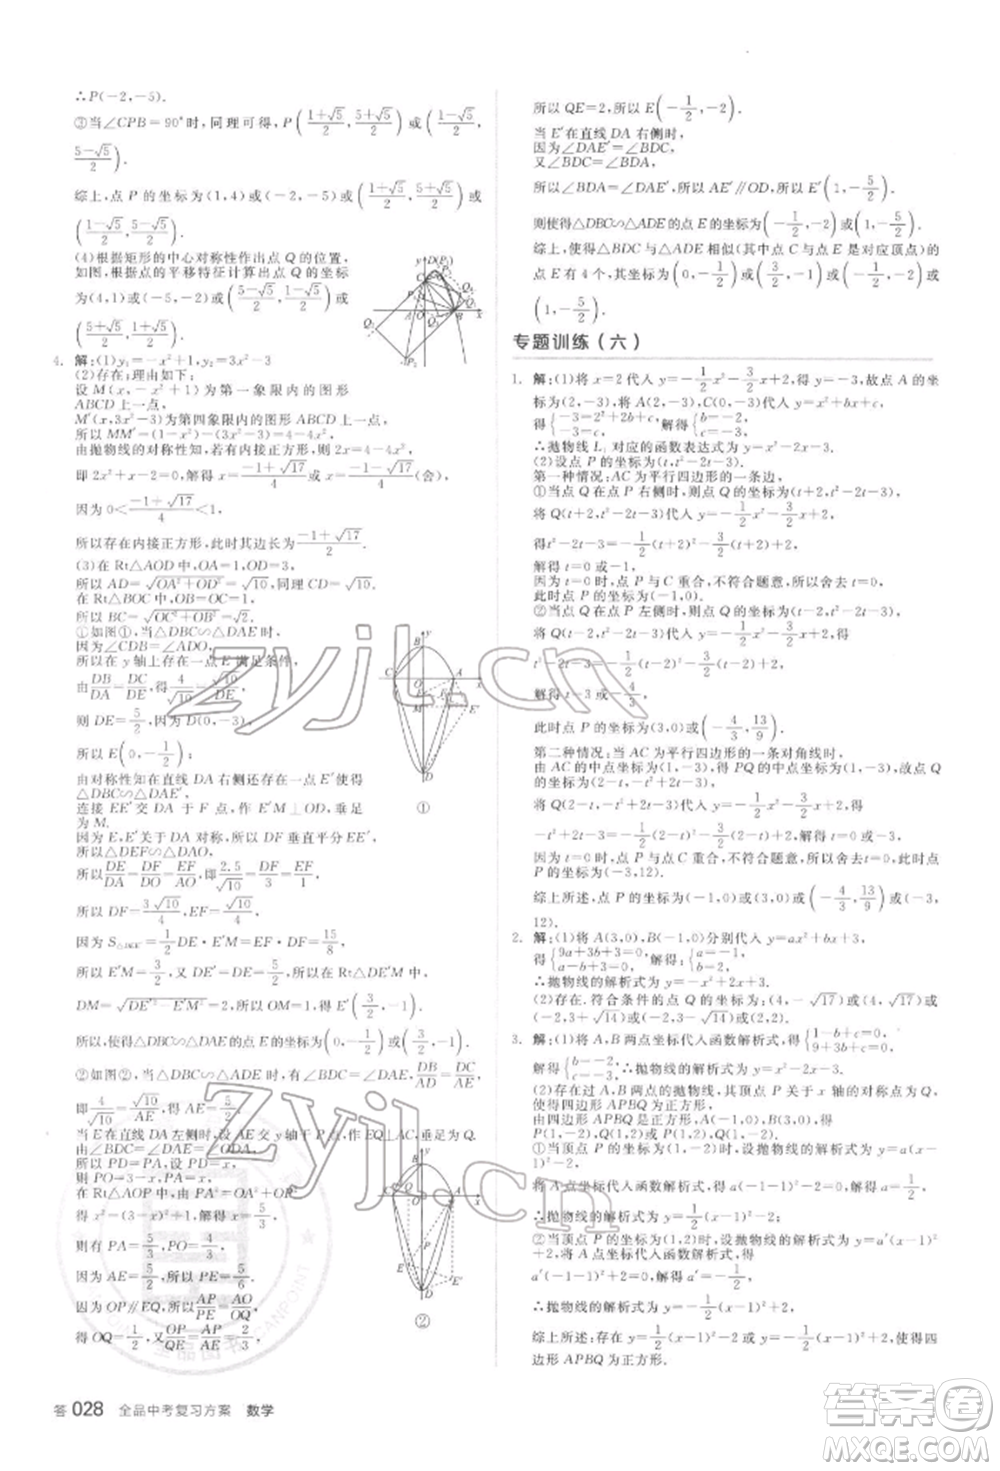 ∴P(-2,-5).
③当∠CPB=90°时,同理可得,P((1+√5)/2,(5+√5)/2)或((1-√5)/2,
(5-√5)/2).
综上,点 P 的坐标为(1,4)或(-2,-5)或((1+√5)/2,(5+√5)/2)或
((1-√5)/2,(5-√5)/2).
(4)根据矩形的中心对称性作出点 Q 的位置,
如图,根据点的平移特征计算出点 Q 的坐标
4. 解:(1)y₁=-x²+1,y₂=3x²-3
(2)存在;理由如下:
设 M(x,-x²+1)为第一象限内的图形
ABCD 上一点,
M′(x,3x²-3)为第四象限内的图形 ABCD 上一点,
所以 MM′=(1-x²)-(3x²-3)=4-4x².
由抛物线的对称性知,若有内接正方形,则 2x=4-4x²,
即 2x²+x-2=0,解得 x=(-1+√17)/4或 x=(-1-√17)/4(舍).
因为 0<(-1+√17)/4<1,
所以存在内接正方形,此时其边长为(-1+√17)/2.
(3)在 Rt△AOD 中,OA=1,OD=3,
所以 AD=√(OA²+OD²)=√10,同理 CD=√10.
在 Rt△BOC 中,OB=OC=1,
所以 BC=√(OC²+OB²)=√2.
①如图①,当△DBC∽△DAE 时,
因为∠CDB=∠ADO,
所以在 y 轴上存在一点 E 满足条件,
由DB/DA=DC/DE,得4/√10=√10/DE,
则 DE=5/2,因为 D(0,-3),
所以 E(0,-1/2);
由对称性知在直线 DA 右侧还存在一点 E′使得
△DBC∽△DAE′,
连接 EE′交 DA 于 F 点,作 E′M⊥OD,垂足
为 M.
因为 E,E′关于 DA 对称,所以 DF 垂直平分 EE′,
所以△DEF∽△DAO,
所以DE/DA=DF/DO=EF/AO,有2.5/√10=DF/3=EF/1,
所以 DF=3√10/4,EF=√10/4.
因为 S△DEE′=1/2 DE·E′M=EF·DF=15/8,
所以 E′M=3/2,又 DE′=DE=5/2,所以在 Rt△DE′M 中,
DM=√(DE′²-E′M²)=2,所以 OM=1,得 E′(3/2,-1).
所以,使得△DBC∽△DAE 的点 E 的坐标为(0,-1/2)或(3/2,-1);
②如图②,当△DBC∽△ADE 时,有∠BDC=∠DAE,DB/AD=DC/AE,
即4/√10=√10/AE,得 AE=5/2.
当 E 在直线 DA 左侧时,设 AE 交 y 轴于 P 点,作 EQ⊥AC,垂足为 Q.
由∠BDC=∠DAE=∠ODA,
所以 PD=PA,设 PD=x,
则 PO=3-x,PA=x,
在 Rt△AOP 中,由 PA²=OA²+OP²,
得 x²=(3-x)²+1,解得 x=5/3,
则有 PA=5/3,PO=4/3,
因为 AE=5/2,所以 PE=5/6,
因为 OP∥EQ,所以PA/PE=AO/OQ,
得 OQ=1/2,又OP/QE=AP/AE,
①
②
所以 QE=2,所以 E(-1/2,-2).
当 E′在直线 DA 右侧时,
因为∠DAE′=∠BDC,
又∠BDC=∠BDA,
所以∠BDA=∠DAE′,所以 AE′∥OD,所以 E′(1,-5/2),
则使得△DBC∽△ADE 的点 E 的坐标为(-1/2,-2)或(1,-5/2).
综上,使得△BDC 与△ADE 相似(其中点 C 与点 E 是对应顶点)的
点 E 有 4 个,其坐标为(0,-1/2)或(3/2,-1)或(-1/2,-2)或
(1,-5/2).
专题训练(六)
1. 解:(1)将 x=2 代入 y=-1/2x²-3/2x+2,得 y=-3,故点 A 的坐
标为(2,-3),将 A(2,-3),C(0,-3)代入 y=x²+bx+c,
得{-3=2²+2b+c,-3=c,解得{b=-2,c=-3,
∴抛物线 L₁ 对应的函数表达式为 y=x²-2x-3.
(2)设点 P 的坐标为(t,t²-2t-3).
第一种情况:AC 为平行四边形的一条边,
①当点 Q 在点 P 右侧时,则点 Q 的坐标为(t+2,t²-2t-3),
将 Q(t+2,t²-2t-3)代入 y=-1/2x²-3/2x+2,
得t²-2t-3=-1/2(t+2)²-3/2(t+2)+2.
解得 t=0 或 t=-1.
因为 t=0 时,点 P 与 C 重合,不符合题意,所以舍去,
此时点 P 的坐标为(-1,0).
②当点 Q 在点 P 左侧时,则点 Q 的坐标为(t-2,t²-2t-3),
将 Q(t-2,t²-2t-3)代入 y=-1/2x²-3/2x+2,得
t²-2t-3=-1/2(t-2)²-3/2(t-2)+2.
解得 t=3 或 t=-4/3.
此时点 P 的坐标为(3,0)或(-4/3,13/9).
第二种情况:当 AC 为平行四边形的一条对角线时,
由 AC 的中点坐标为(1,-3),得 PQ 的中点坐标为(1,-3),故点 Q
的坐标为(2-t,-t²+2t-3),
将 Q(2-t,-t²+2t-3)代入 y=-1/2x²-3/2x+2,得
-t²+2t-3=-1/2(2-t)²-3/2(2-t)+2,解得 t=0 或 t=-3.
因为 t=0 时,点 P 与点 C 重合,不符合题意,所以舍去,此时点 P
的坐标为(-3,12).
综上所述,点 P 的坐标为(-1,0)或(3,0)或(-4/3,13/9)或(-3,
12).
2. 解:(1)将 A(3,0),B(-1,0)分别代入 y=ax²+bx+3,
得{9a+3b+3=0,a-b+3=0,解得{a=-1,b=2,
故抛物线的解析式为 y=-x²+2x+3.
3. 解:(1)将 A,B 两点坐标代入函数解析式,得{1-b+c=0,9+3b+c=0,
解得{b=-2,c=-3,∴抛物线的解析式为 y=x²-2x-3.
(2)存在过 A,B 两点的抛物线,其顶点 P 关于 x 轴的对称点为 Q,
使得四边形 APBQ 为正方形.
由四边形 APBQ 为正方形,A(-1,0),B(3,0),得
P(1,-2)或(1,2).
①当顶点为 P(1,-2)时,设抛物线的解析式为 y=a(x-1)²-2,
将 A 点坐标代入函数解析式,得 a(-1-1)²-2=0,解得 a=1/2,
∴抛物线的解析式为 y=1/2(x-1)²-2;
②当顶点为 P(1,2)时,设抛物线的解析式为 y=a′(x-1)²+2,
将 A 点坐标代入函数解析式,得
a′(-1-1)²+2=0,解得 a′=-1/2,
∴抛物线的解析式为 y=-1/2(x-1)²+2.
综上所述:存在 y=1/2(x-1)²-2 或 y=-1/2(x-1)²+2,使得四
边形 APBQ 为正方形.
答 028 全品中考复习方案 数学
zyjl.cn
zyjl.cn
答案圈
MXQE.COM